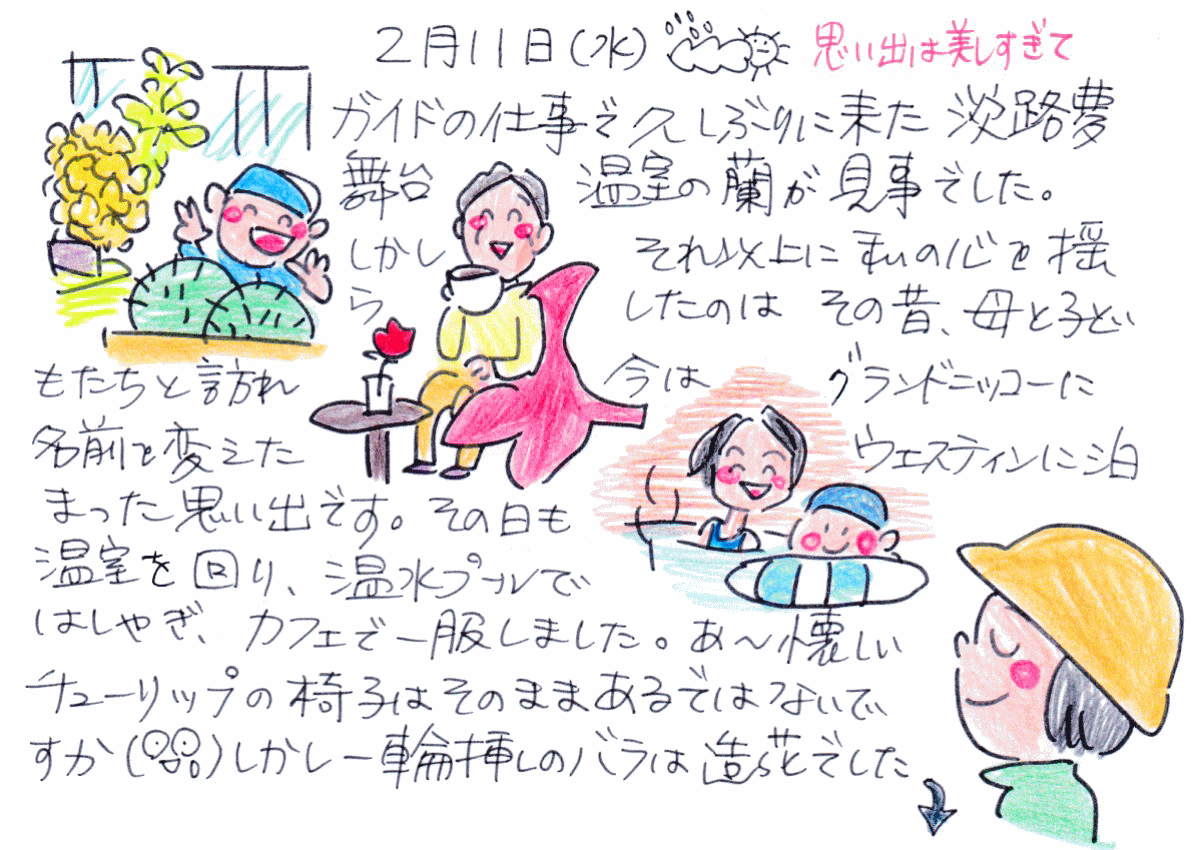 2月11日(水) 思い出は美しすぎて
ガイドの仕事で久しぶりに来た 淡路夢
舞台 温室の蘭が見事でした。
しかし それ以上に私の心を揺
ら したのは その昔、母と子ども
もたちと訪れ 今は グランドニッコーに
名前を変えた ウェスティンに泊
まった思い出です。その日も
温室を回り、温水プールで
はしゃぎ、カフェで一服しました。あ〜懐しい
チューリップの椅子はそのままあるではないで
すか( )しかし一輪挿しのバラは造花でした